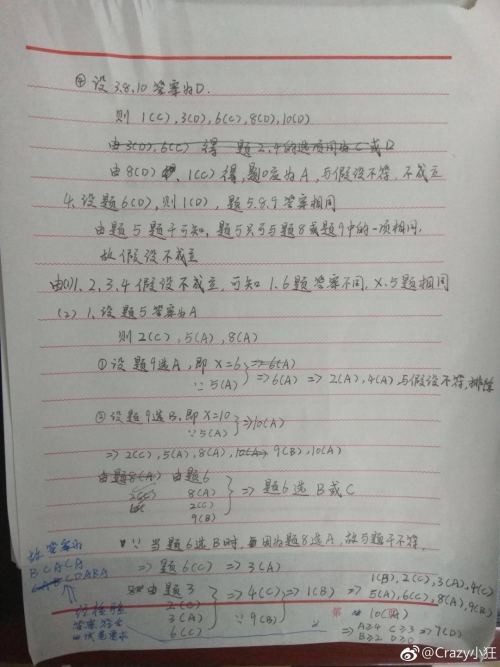 ④设3,8,10答案为D.
则 1(C),3(D),6(C),8(D),10(D)
由3(D),6(C) 得 题2,4的选项同为C或D
由8(D) 1(C)得,题10应为A,与假设不符,不成立
4.设题6(D),则1(D),题5.8.9答案相同
由题5题干可知,题5只可与题8或题9中的一项相同,
故假设不成立
由(1)1,2,3,4假设不成立,可知1.6题答案不同,X.5题相同
(2) 1.设题5答案为A
则2(C),5(A),8(A)
①设题9选A,即X=6 =>6(A)
∵5(A) =>6(A) => 2(A),4(A)与假设不符,排除
②设题9选B,即X=10
∵5(A) =>10(A)
=> 2(C),5(A),8(A),10(A)=>9(B),10(A)
由题8(A) 由题6
2(C) 8(A)
2(C)
9(B)
=> 题6选B或C
∵当题6选B时,因为题8选A,故与题干不符.
=> 题6(C) => 3(A)
由题3
2(C)
3(A)
6(C)
=> 4(C)
∵9(B)
=> 1(B)
=> 1(B),2(C),3(A),4(C)
5(A),6(C),8(A),9(B)
10(A)
=> A≥4 C≥3
B≥2 D≥0
=>7(D)
故答案为
BCACA
CDABA
经检验
答案符合
题意要求
@Crazy小狂